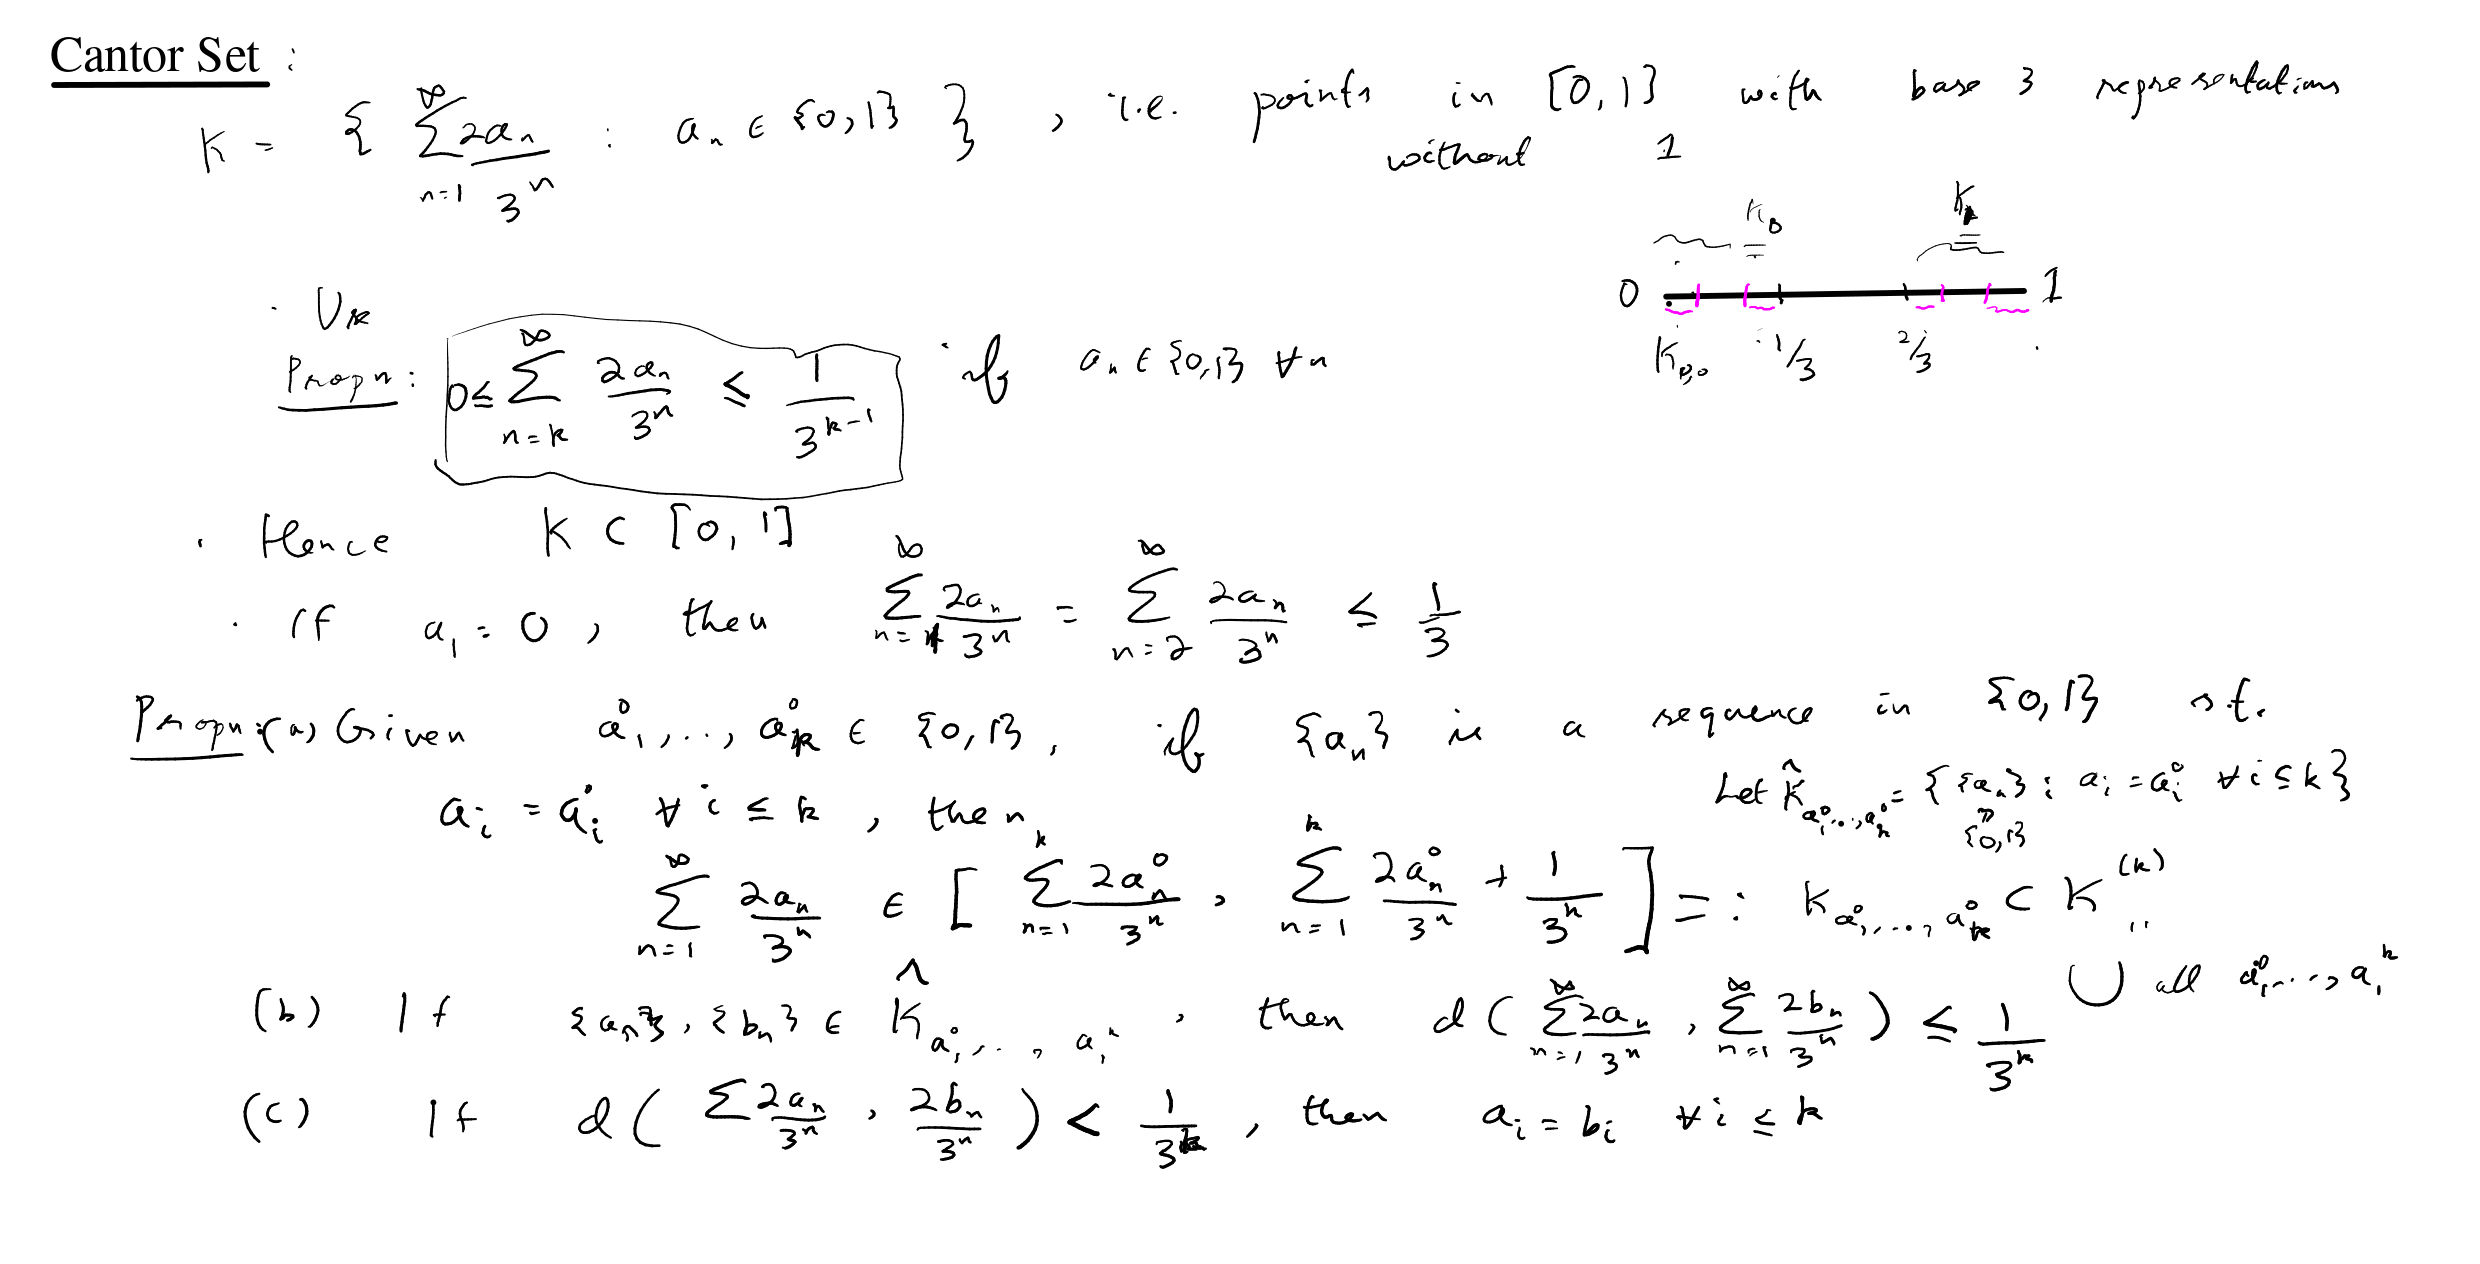 Cantor Set :
K = { ∑_{n=1}^∞ 2a_n/3^n : a_n ∈ {0,1} } , i.e. points in [0,1] with base 3 representations
without 1
K_0 K_1
0 1
K_{0,0} 1/3 2/3
· Use
Propn: 0 ≤ ∑_{n=k}^∞ 2a_n/3^n ≤ 1/3^{k-1} if a_n ∈ {0,1} ∀n
· Hence K ⊂ [0,1]
· If a_1 = 0, then ∑_{n=1}^∞ 2a_n/3^n = ∑_{n=2}^∞ 2a_n/3^n ≤ 1/3
Propn: (a) Given a_1^0, .., a_k^0 ∈ {0,1}, if {a_n} is a sequence in {0,1} s.t.
a_i = a_i^0 ∀ i ≤ k, then
Let K̂_{a_1^0,..,a_k^0} = { {a_n} : a_i = a_i^0 ∀ i ≤ k }
{0,1}
∑_{n=1}^∞ 2a_n/3^n ∈ [ ∑_{n=1}^k 2a_n^0/3^n , ∑_{n=1}^k 2a_n^0/3^n + 1/3^k ] =: K_{a_1^0,...,a_k^0} ⊂ K^{(k)}
∪ all a_1^0, ..., a_1^k
(b) If {a_n}, {b_n} ∈ K̂_{a_1^0, ..., a_1^k}, then d( ∑_{n=1}^∞ 2a_n/3^n , ∑_{n=1}^∞ 2b_n/3^n ) ≤ 1/3^k
(c) If d( ∑ 2a_n/3^n , 2b_n/3^n ) < 1/3^k , then a_i = b_i ∀ i ≤ k